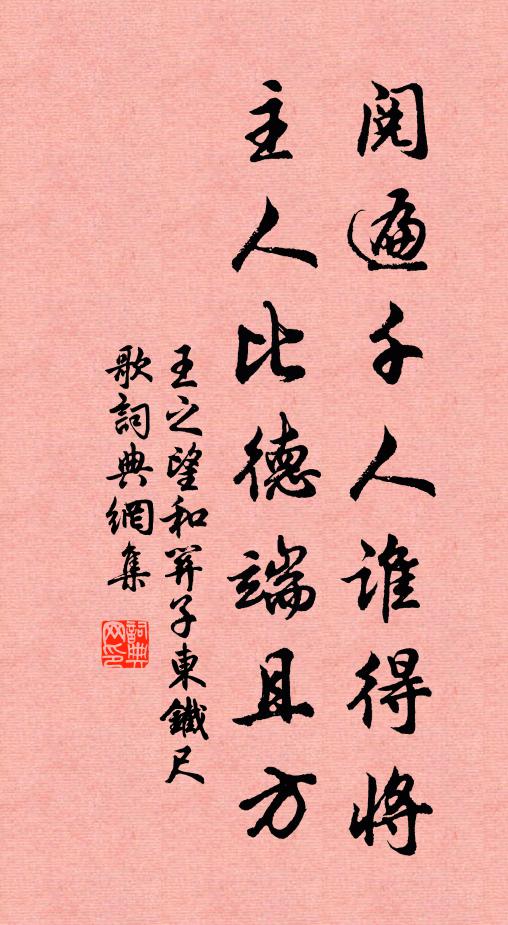 閱遍千人誰得將
主人比德端且方
王之望和羿子東鐵尺
歌詞典網集
詞典
网印